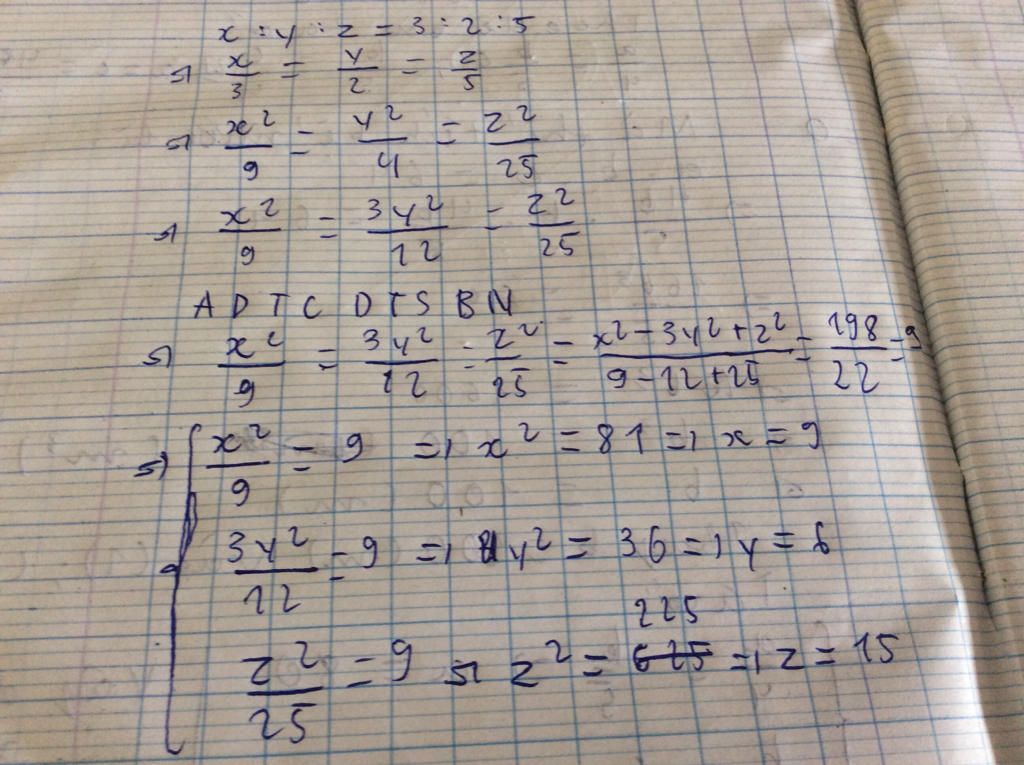 x : y : z = 3 : 2 : 5
=> x/3 = y/2 = z/5
=> x²/9 = y²/4 = z²/25
=> x²/9 = 3y²/12 = z²/25
ADTC DTSBN
=> x²/9 = 3y²/12 = z²/25 = x² - 3y² + z²/9 - 12 + 25 = 198/22 = 9
=> { x²/9 = 9 => x² = 81 => x = 9
3y²/12 = 9 => y² = 36 => y = 6
z²/25 = 9 => z² = 225 => z = 15